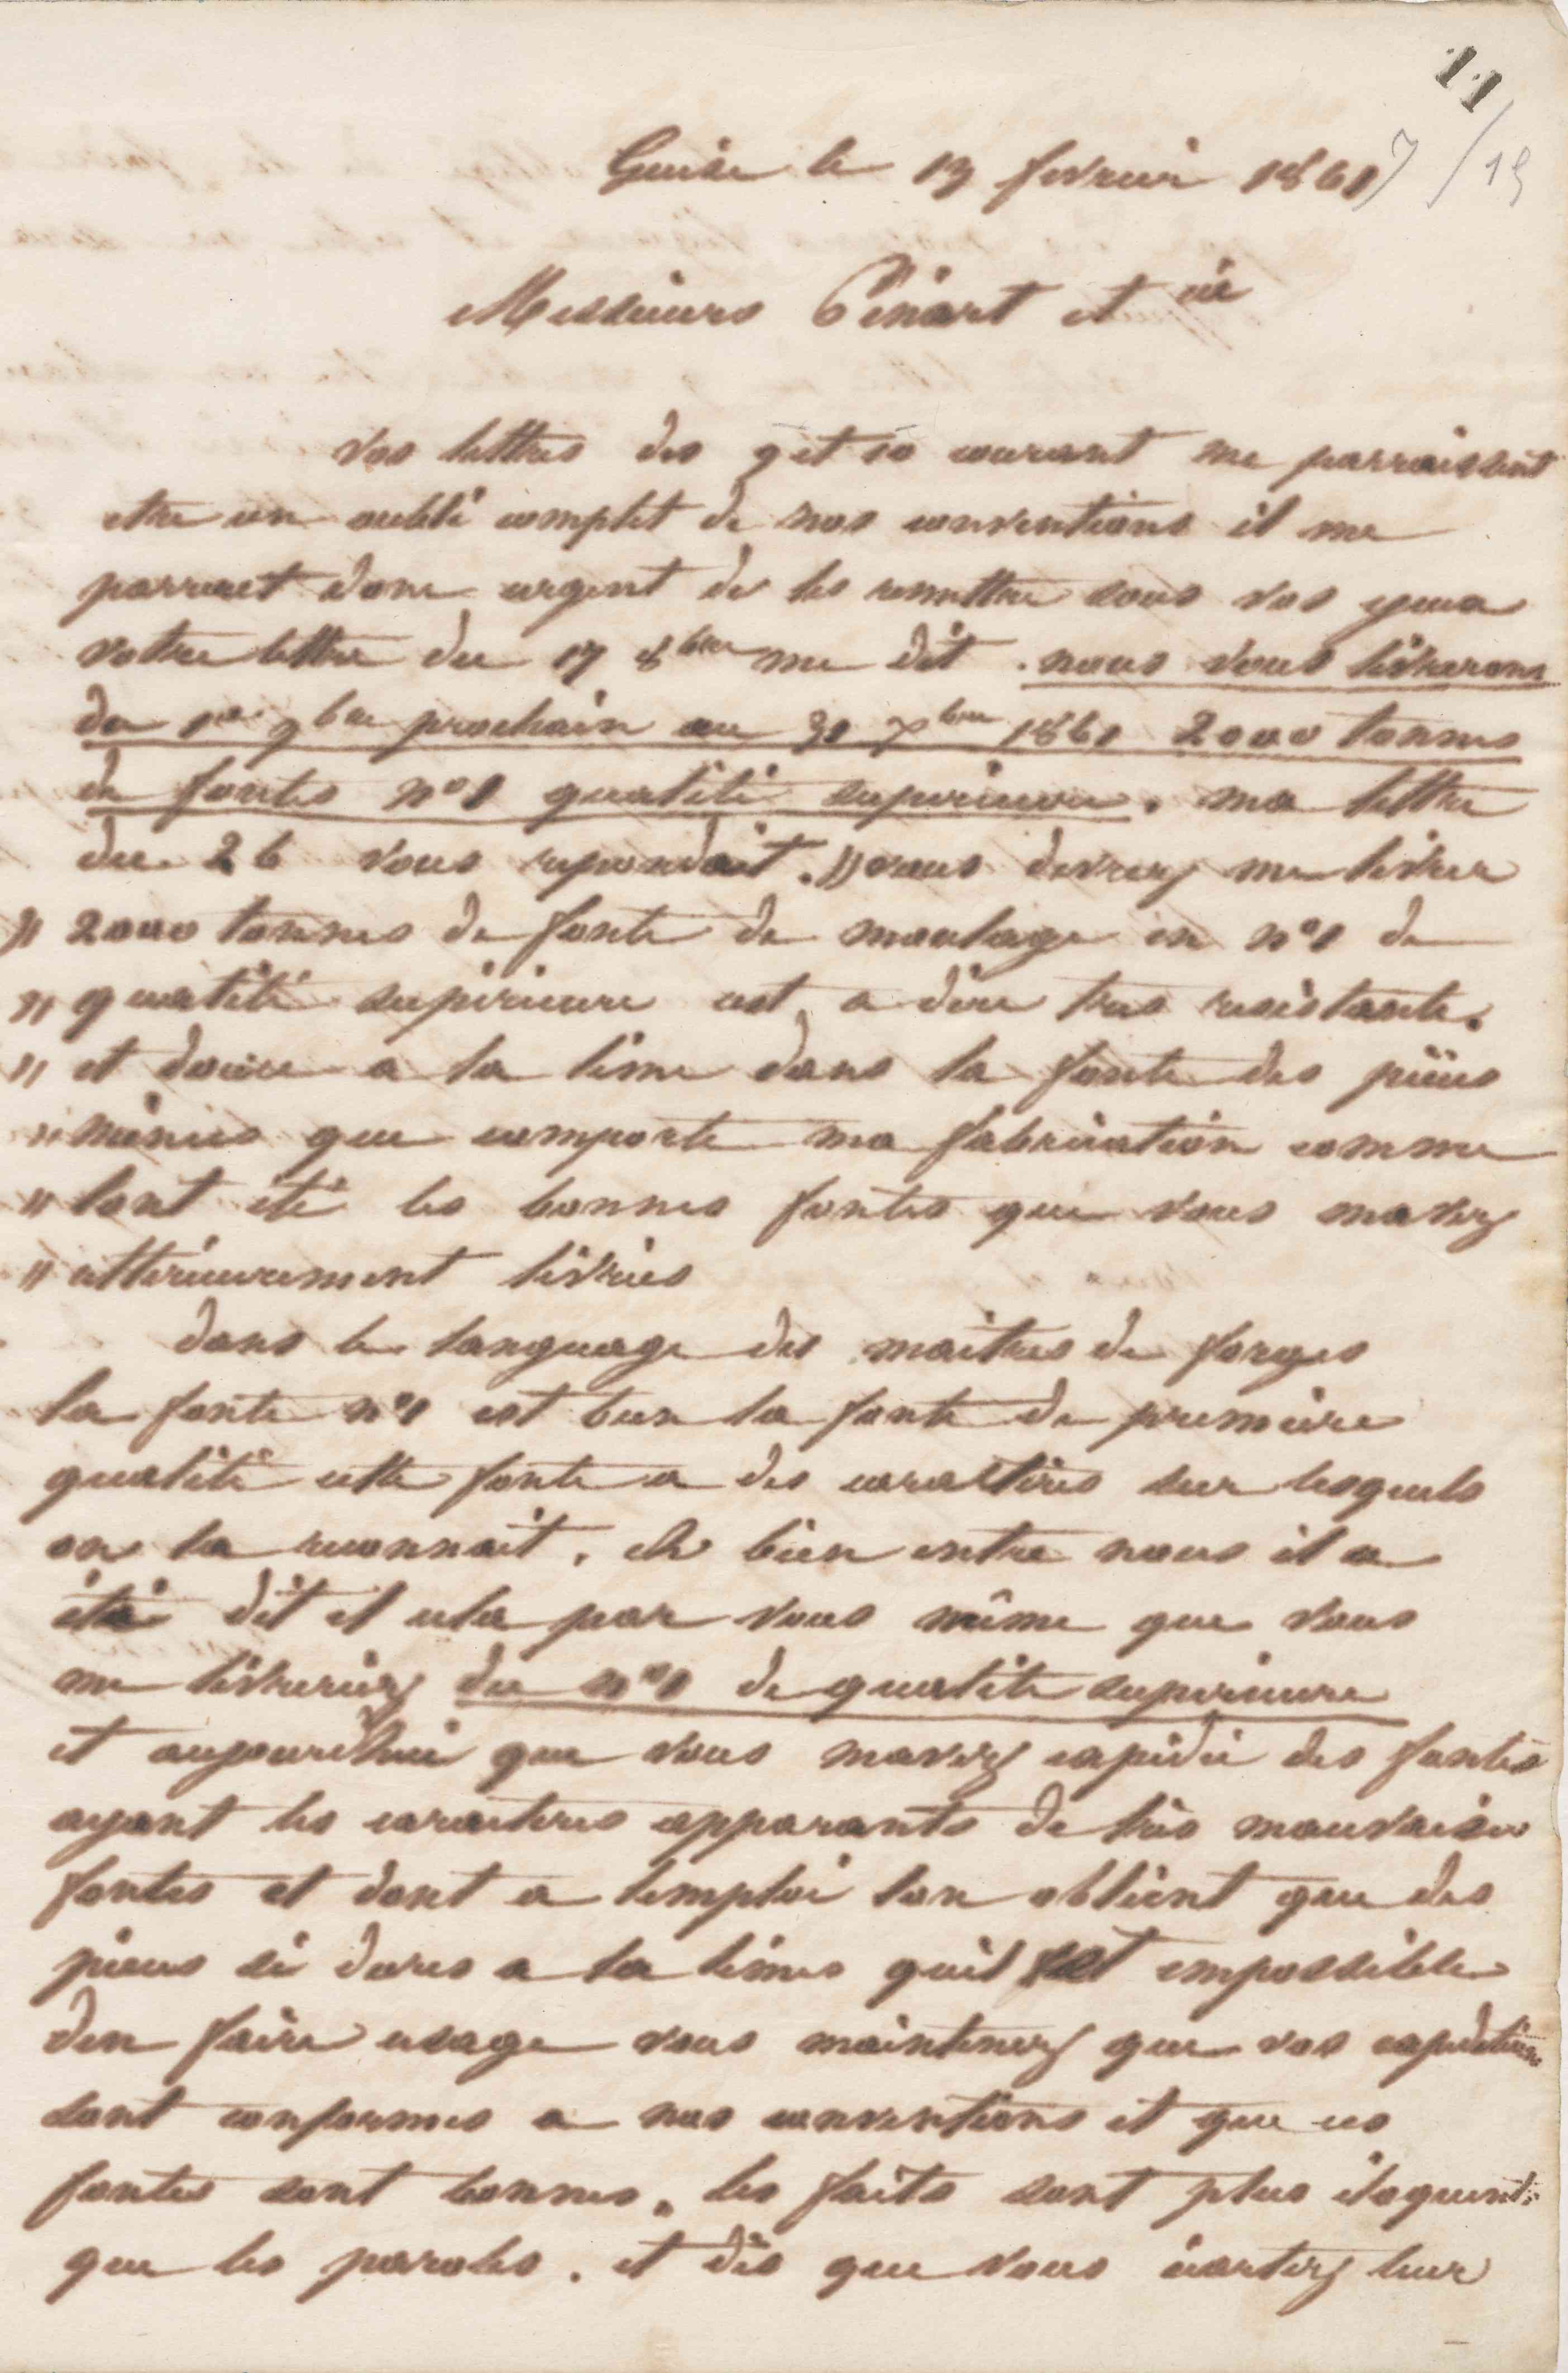 11
7/19
Guise le 13 fevrier 1861
Messieurs Pinart et cie
Vos lettres des 9 et 10 courant me parraissent
etre un oubli complet de nos conventions il me
parrait donc urgent de les remettre sous vos yeux
votre lettre du 17 8bre me dit . nous vous livrerons
du 1er 9bre prochain au 31 Xbre 1861 2000 tonnes
de fontes n°1 qualité superieure. ma lettre
du 26 vous repondait. » vous devrez me livrer
» 2000 tonnes de fonte de moulage en n°1 de
» qualité supérieure cest a dire tres resistante.
» et douce a la lime dans la fonte des pièces
» minces que comporte ma fabrication comme
» lont été les bonnes fontes que vous mavez
» ulterieurement livrées
dans le language des maitres de forges
la fonte n°1 est bien la fonte de première
qualité cette fonte a des caractères sur lesquels
on la reconnait. eh bien entre nous il a
été dit et cela par vous même que vous
me livreriez du n°1 de qualité superieure
et aujourdhui que vous mavez expédié des fontes
ayant les caractères apparants de très mauvaises
fontes et dont a lemploi lon obtient que des
pieces si dures a la limes quil est impossible
den faire usage vous maintenez que vos expéditions
sont conformes a nos conventions et que ces
fontes sont bonnes. les faits sont plus éloquents
que les paroles. et dès que vous écartez leur